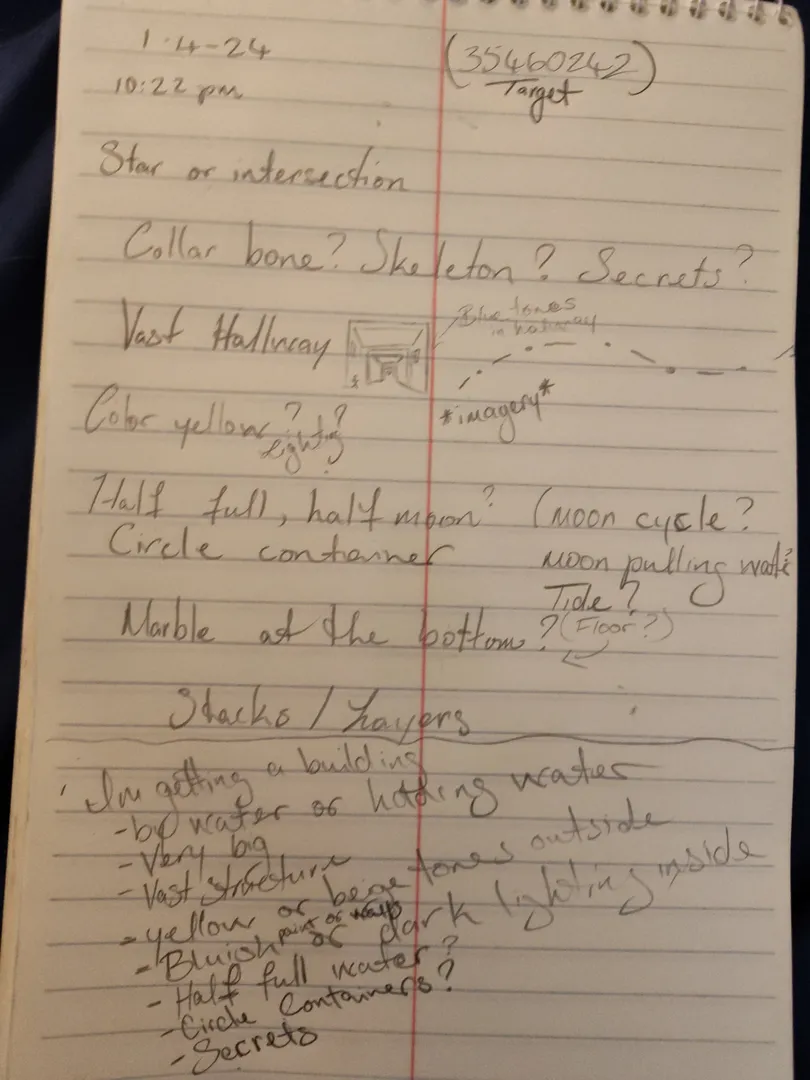 1-4-24
(35460242)
10:22 pm
Target
Star or intersection
Collar bone? Skeleton? Secrets?
Vast Hallway
Blue tones
in hallway
Color yellow? ?
Light?
*imagery*
Half full, half moon? (Moon cycle?
Circle container
Moon pulling
Tide?
Marble at the bottom? (Floor?)
Stacks / Layers
Im getting a building
-by water or holding water
-Very big
-Vast structure
-yellow or beige tones outside
-Bluish paint or walls or dark lighting inside
-Half full water?
-Circle Containers?
-Secrets